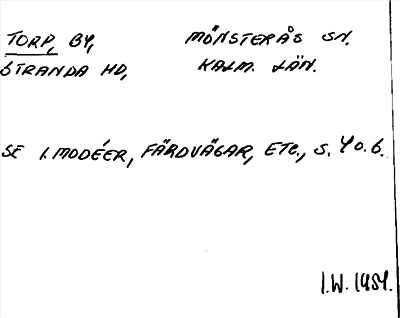 TORP, BY, MÖNSTERÅS SN.
STRANDA HD, KALM. LÄN.
SE I. MODÉER, FÄRDVÄGAR, ETC., S. 40.6.
I.W. 1954.